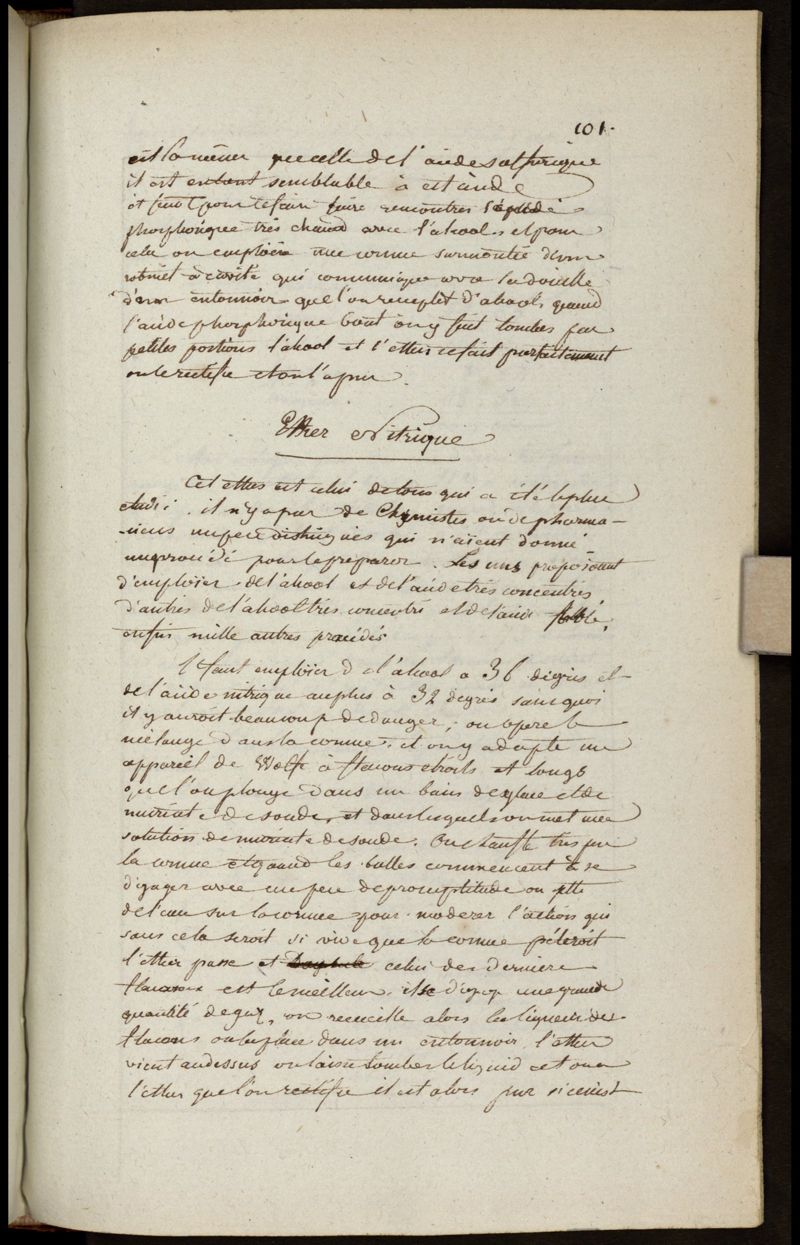 101.
est la même que celle de l'acide sulfurique
il est entout semblable à cet acide
et faut pour le faire faire rencontrer l'acide
phosphorique très chaud avec l'alcool, et pour
cela on emploie une cornue surmontée d'un
robinet à cavité qui communique avec la douille
d'un entonnoir que l'on remplit d'alcool, quand
l'acide phosphorique bout on y fait tomber par
petites portions l'alcool et l'ether se fait parfaitement
on le rectifie et on l'a pur.
Ether Nitrique
Cet ether est celui de tous qui a été le plus
etudié. il n'y a pas de Chymistes ou de pharma-
-ciens un peu distingués qui n'aient donné
un procédé pour le preparer. Les uns proposoient
d'emploier de l'alcool et de l'acide très concentrés
d'autres de l'alcool très concentré et de l'acide foible,
enfin mille autres procédés
Il faut emploier de l'alcool a 36 degrés et
de l'acide nitrique au plus à 32 degrés sans quoi
il y auroit beaucoup de danger, on opere le
mélange dans la cornue, et on y adapte un
appareil de Wolf à flacons etroits et longs
que l'on plonge dans un bain de glace et de
muriate de soude, et dans lequel on met une
solution de muriate de soude. On chauffe très peu
la cornue et quand les bulles commencent à se
dégager avec un peu de promptitude on jette
de l'eau sur la cornue pour moderer l'action qui
sans cela seroit si vive que la cornue péteroit
l'ether passe et celui des derniers
flacons est le meilleur. il se dégage une grande
quantité de gaz, on recueille alors les liqueurs des
flacons on les place dans un entonnoir, l'ether
vient audessus on laisse tomber le liquid et on a
l'ether que l'on rectifie il est alors pur si ce n'est